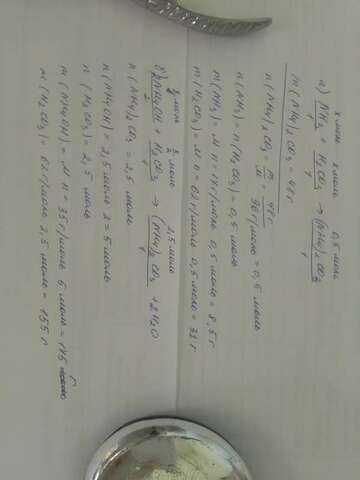 x моль y моль 0,5 моль
а) NH3 + H2CO3 → (NH4)2CO3
1 1 1
m(NH4)2CO3 = 48г
n(NH4)2CO3 = m/M = 48г/96г/моль = 0,5 моль
n(NH3) = n(H2CO3) = 0,5 моль
m(NH3) = M n = 17г/моль 0,5 моль = 8,5г
m(H2CO3) = M n = 62г/моль 0,5 моль = 31г
моль моль 2,5 моль
б) 2NH4OH + H2CO3 → (NH4)2CO3 + 2H2O
2 1 1
n(NH4)2CO3 = 2,5 моль
n(NH4OH) = 2,5 моль 2 = 5 моль
n(H2CO3) = 2,5 моль
m(NH4OH) = M n = 35г/моль 5 моль = 175 г
m(H2CO3) = 62г/моль 2,5 моль = 155г